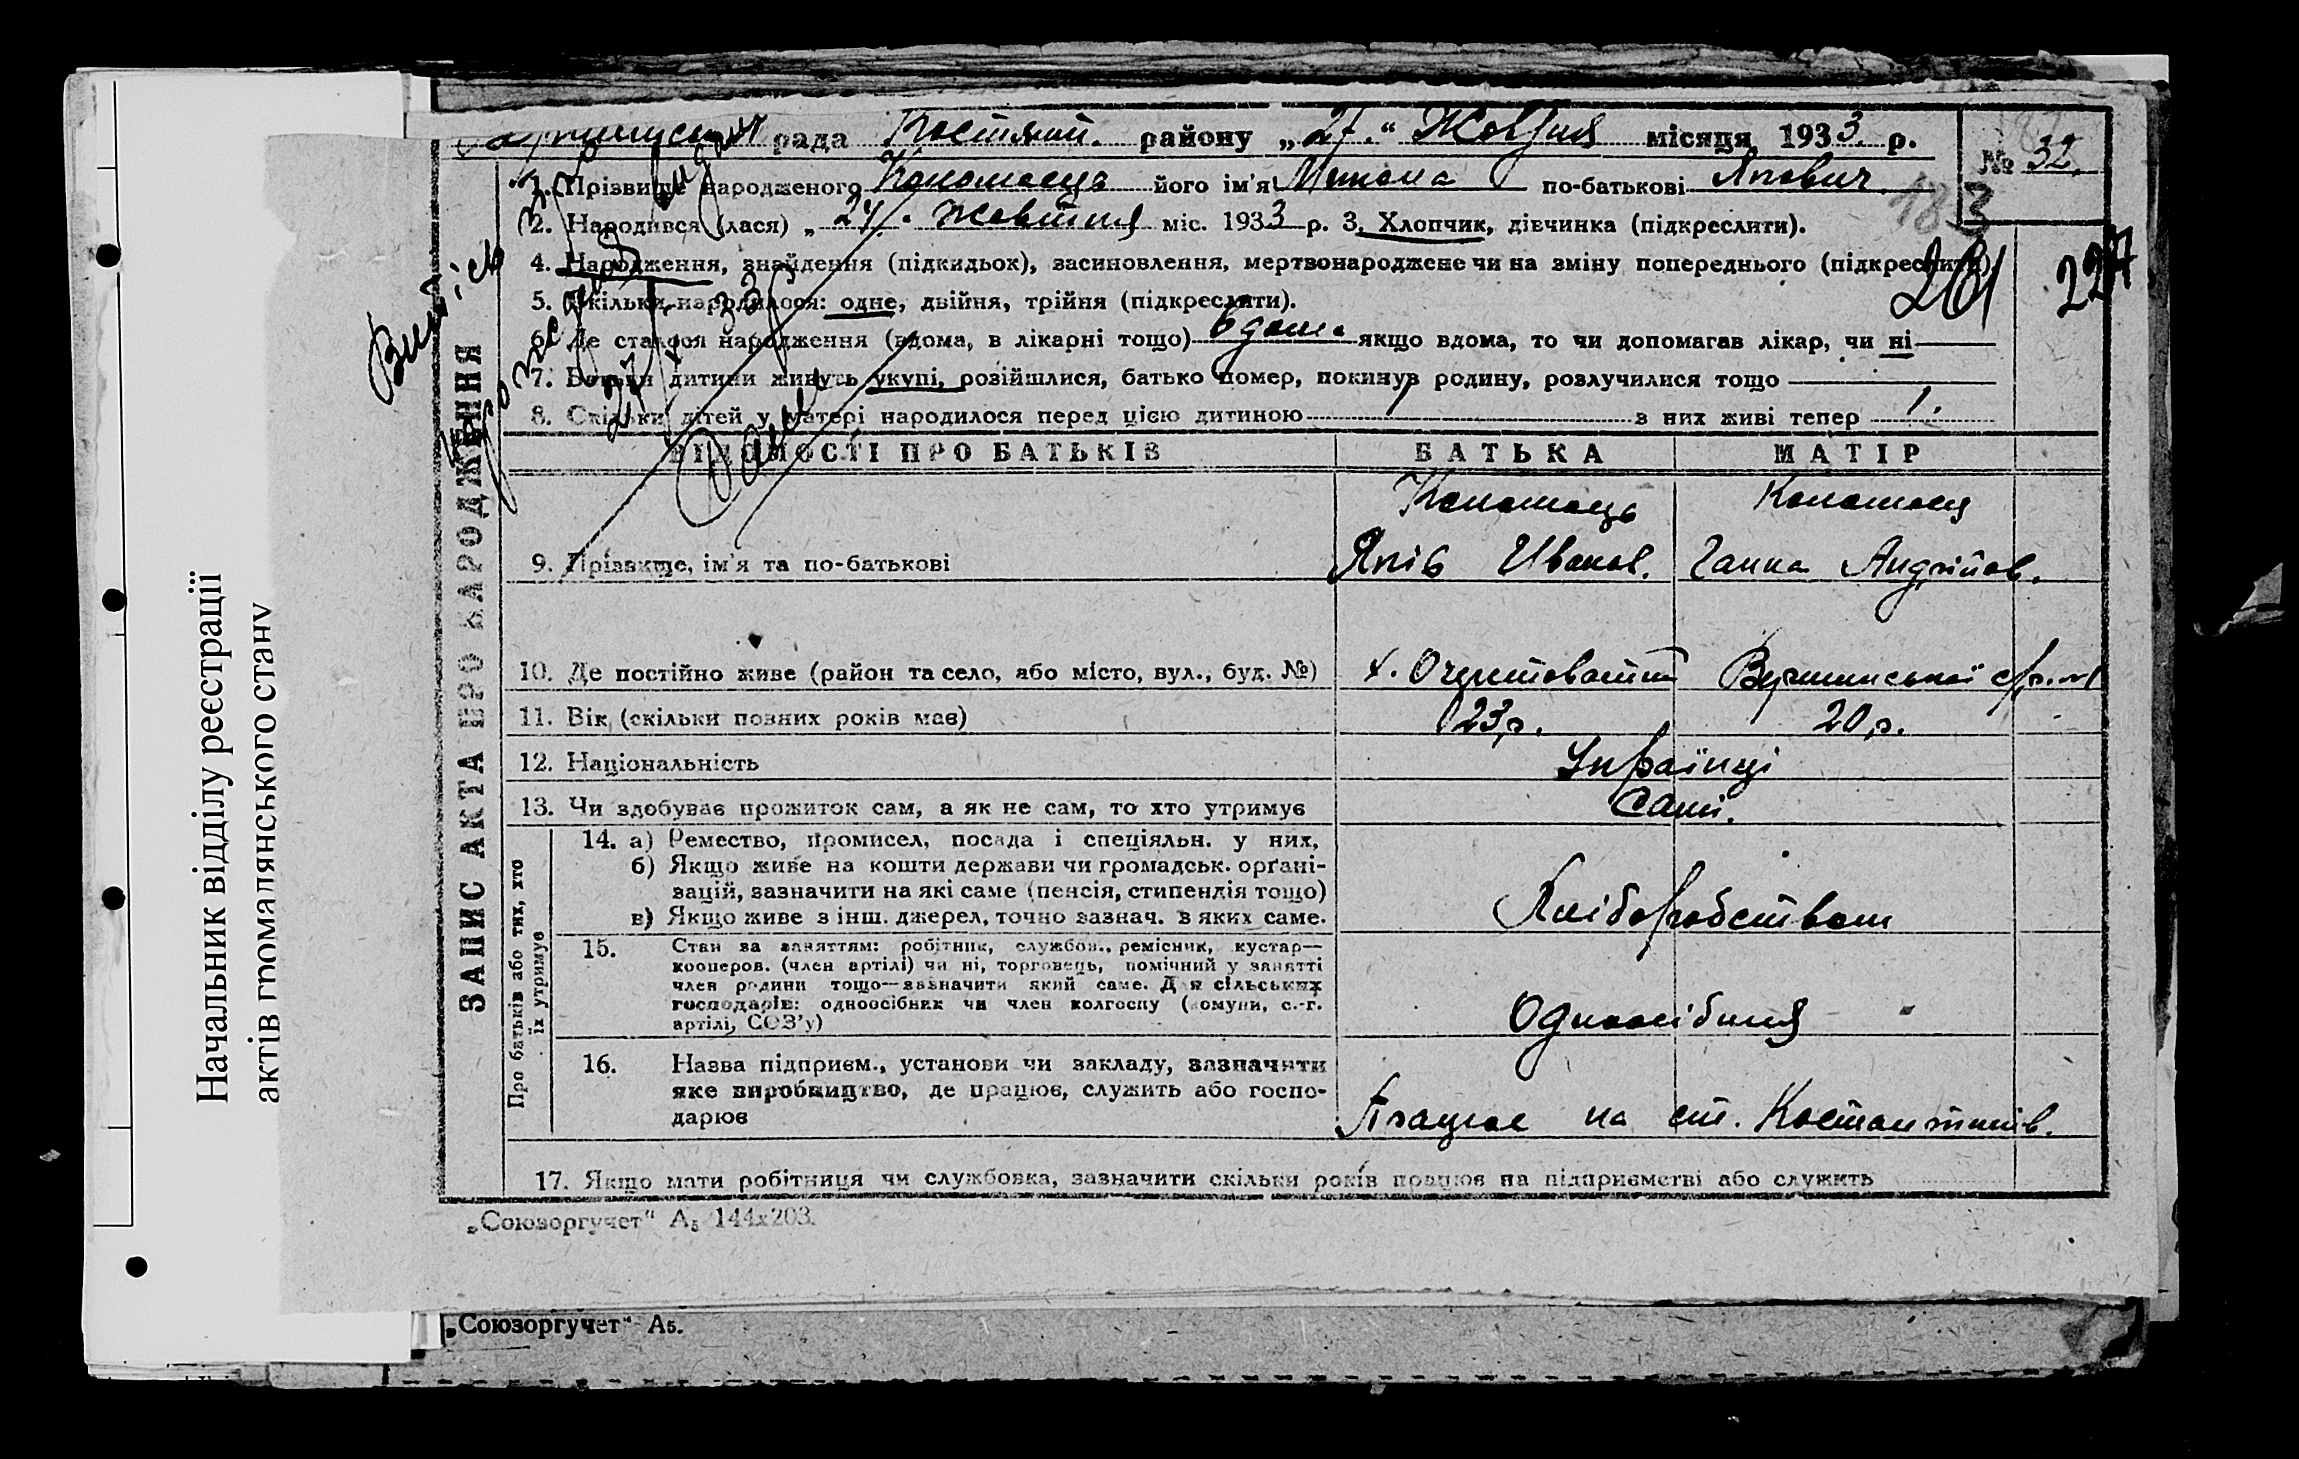 рада Костянт. району „27.“ Жовтня місяця 1933. р.
№ 32.
1. Прізвище народженого Коломоєць його ім'я Микола по-батькові Якович.
183
2. Народився (лася) „24“ Жовтня міс. 1933 р. 3. Хлопчик, дівчинка (підкреслити).
4. Народження, знайдення (підкидьок), засиновлення, мертвонароджене чи на зміну попереднього (підкреслити)
227
5. Скільки народилося: одне, двійня, трійня (підкреслити).
6. Де сталося народження (вдома, в лікарні тощо) вдома якщо вдома, то чи допомагав лікар, чи ні
7. Батьки дитини живуть укупі, розійшлися, батько помер, покинув родину, розлучилися тощо
8. Скільки дітей у матері народилося перед цією дитиною 1 з них живі тепер 1.
ВІДОМОСТІ ПРО БАТЬКІВ БАТЬКА МАТІР
Коломоєць Коломоєць
9. Прізвище, ім'я та по-батькові Яків Іванов. Ганна Андрійов.
10. Де постійно живе (район та село, або місто, вул., буд. №) х.
11. Вік (скільки повних років має) 23 р. 20 р.
12. Національність Українці
13. Чи здобуває прожиток сам, а як не сам, то хто утримує Самі.
14. а) Ремество, промисел, посада і спеціяльн. у них,
б) Якщо живе на кошти держави чи громадськ. органі-
зацій, зазначити на які саме (пенсія, стипендія тощо)
в) Якщо живе з інш. джерел, точно зазнач. з яких саме.
Хліборобством
15. Стан за заняттям: робітник, службов., ремісник, кустар—
кооперов. (член артілі) чи ні, торговець, помічний у занятті
член родини тощо—зазначити який саме. Для сільських
господарів: одноосібник чи член колгоспу (комуни, с.-г.
артілі, СОЗ'у)
Одноосібния
16. Назва підприєм., установи чи закладу, зазначити
яке виробництво, де працює, служить або госпо-
дарює
Працює на ст. Костянтинів.
17. Якщо мати робітниця чи службовка, зазначити скільки років працює на підприємстві або служить
„Союзоргучет“ А₅ 144х203.
„Союзоргучет“ А5.
ЗАПИС АКТА ПРО НАРОДЖЕННЯ
Про батьків або тих, хто
їх утримує
Начальник відділу реєстрації
актів громадянського стану